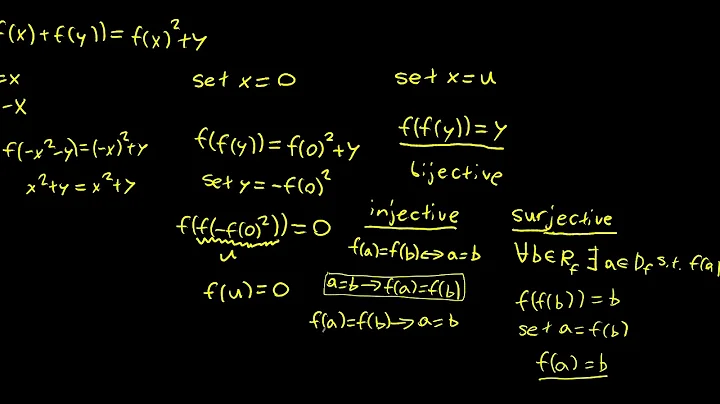 f(x)+f(y))=f(x)²+y
=x
-x
f(-x²-y)=(-x)²+y
x²+y=x²+y
set x=0
f(f(y))=f(0)²+y
set y=-f(0)²
f(f(-f(0)²))=0
u
f(u)=0
set x=u
f(f(y))=y
bijective
injective
f(a)=f(b)↔a=b
a=b→f(a)=f(b)
f(a)=f(b)→a=b
surjective
∀b∈R_f ∃a∈D_f s.t. f(a)
f(f(b))=b
set a=f(b)
f(a)=b